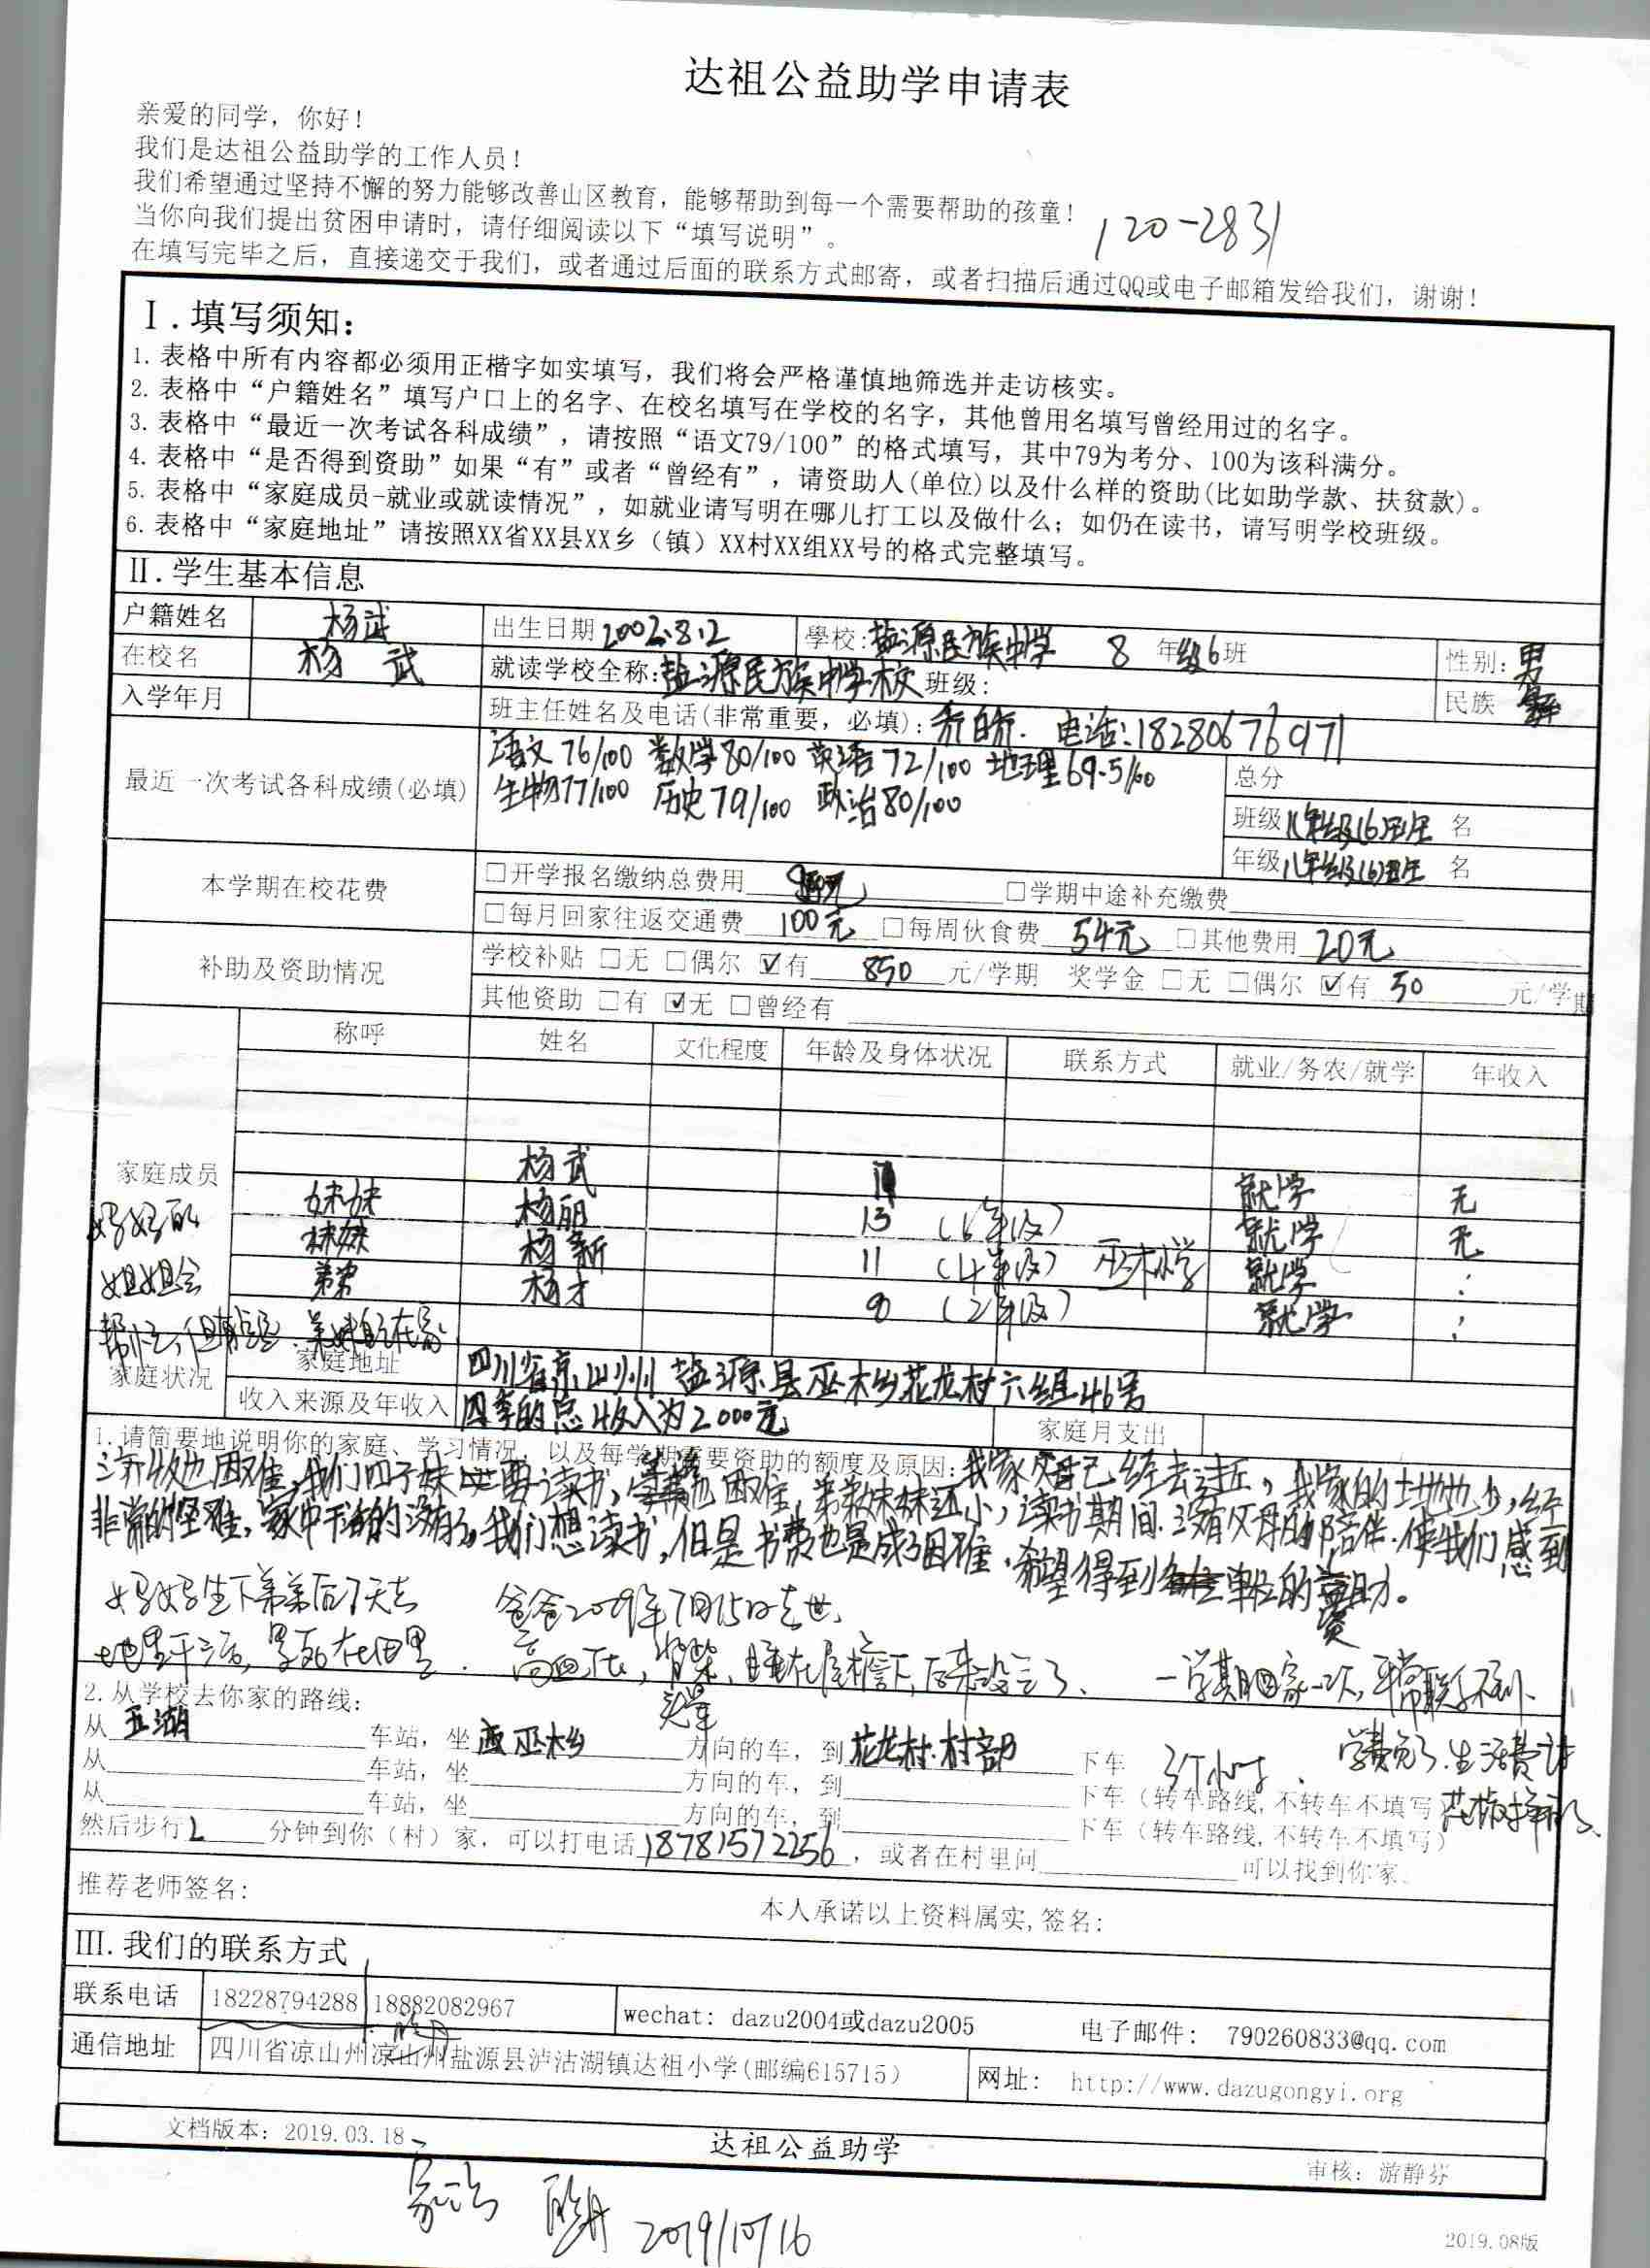 达祖公益助学申请表
亲爱的同学，你好！
我们是达祖公益助学的工作人员！
我们希望通过坚持不懈的努力能够改善山区教育，能够帮助到每一个需要帮助的孩童！
当你向我们提出贫困申请时，请仔细阅读以下“填写说明”。
120-2831
在填写完毕之后，直接递交于我们，或者通过后面的联系方式邮寄，或者扫描后通过QQ或电子邮箱发给我们，谢谢！
Ⅰ.填写须知：
1. 表格中所有内容都必须用正楷字如实填写，我们将会严格谨慎地筛选并走访核实。
2. 表格中“户籍姓名”填写户口上的名字、在校名填写在学校的名字，其他曾用名填写曾经用过的名字。
3. 表格中“最近一次考试各科成绩”，请按照“语文79/100”的格式填写，其中79为考分、100为该科满分。
4. 表格中“是否得到资助”如果“有”或者“曾经有”，请资助人(单位)以及什么样的资助(比如助学款、扶贫款)。
5. 表格中“家庭成员-就业或就读情况”，如就业请写明在哪儿打工以及做什么；如仍在读书，请写明学校班级。
6. 表格中“家庭地址”请按照XX省XX县XX乡（镇）XX村XX组XX号的格式完整填写。
Ⅱ.学生基本信息
户籍姓名 杨武 出生日期 2002.8.2 學校：盐源民族中学 8 年级6班 性别：男
在校名 杨 武 就读学校全称：盐源民族中学校 班级： 民族 彝
入学年月 班主任姓名及电话(非常重要，必填)： 电话：18280676971
最近一次考试各科成绩(必填) 语文76/100 数学80/100 英语72/100 地理69.5/100
生物77/100 历史79/100 政治80/100
总分
班级 名
年级 名
本学期在校花费 □开学报名缴纳总费用 □学期中途补充缴费
□每月回家往返交通费 100元 □每周伙食费 54元 □其他费用 20元
补助及资助情况 学校补贴 □无 □偶尔 ☑有 850 元/学期 奖学金 □无 □偶尔 ☑有 50 元/学期
其他资助 □有 ☑无 □曾经有
称呼 姓名 文化程度 年龄及身体状况 联系方式 就业/务农/就学 年收入
家庭成员
杨武 就学 无
妹妹 杨丽 13 (6年级) 就学 无
妹妹 杨新 11 (4年级) 巫木小学 就学
弟弟 杨才 8 (2年级) 就学
家庭状况 家庭地址 四川省凉山州盐源县巫木乡花龙村六组46号
收入来源及年收入 四季的总收入为2000元 家庭月支出
1.请简要地说明你的家庭、学习情况，以及每学期需要资助的额度及原因：我家父母已经去逝，我家的土地也少，经
济收也困难，我们四子妹要读书，学费也困难，弟弟妹妹还小，读书期间，没有父母的陪伴，使我们感到
非常的坚难，家中干活的没有了，我们想读书，但是书费也是成了困难，希望得到单位的资助。
妈妈生下弟弟后7天去 爸爸2019年7月15日去世，
地里干活，累死在田里． 高血压，背柴，睡在屋檐下，后来没言了、 一学期回家一次，平常联系不到、
头晕
2.从学校去你家的路线：
从 五湖 车站，坐 巫木乡 方向的车，到 花龙村村部 下车 3个小时． 学费免了．生活费
从 车站，坐 方向的车，到 下车（转车路线，不转车不填写）
从 车站，坐 方向的车，到 下车（转车路线，不转车不填写）
然后步行 2 分钟到你（村）家，可以打电话 18781572256，或者在村里问 可以找到你家.
推荐老师签名： 本人承诺以上资料属实,签名：
Ⅲ.我们的联系方式
联系电话 18228794288 18882082967 wechat: dazu2004或dazu2005 电子邮件： 790260833@qq.com
通信地址 四川省凉山州凉山州盐源县泸沽湖镇达祖小学(邮编615715) 网址： http://www.dazugongyi.org
文档版本：2019.03.18 达祖公益助学 审核：游静芬
2019/10/16
2019.08版